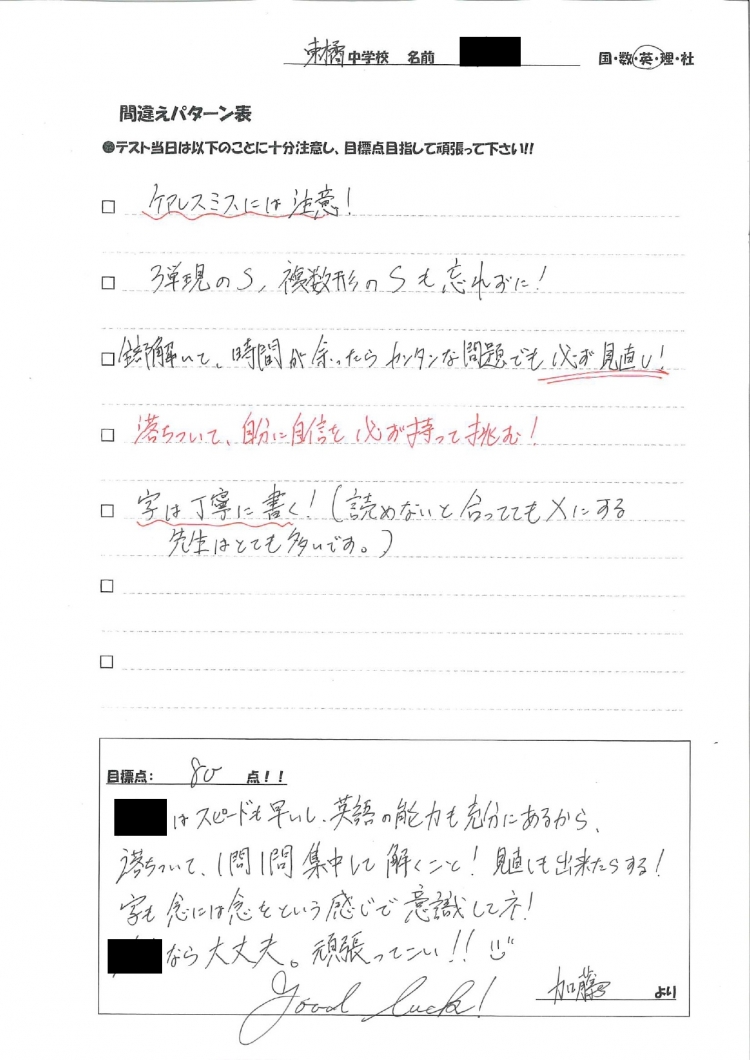 東橘中学校 名前
国・数・英・理・社
間違えパターン表
●テスト当日は以下のことに十分注意し、目標点目指して頑張って下さい!!
□ ケアレスミスには注意!
□ 3単現のS, 複数形のSも忘れずに!
□ 全部解いて、時間が余ったらカンタンな問題でも必ず見直し!
□ 落ちついて、自分に自信を必ず持って挑む!
□ 字は丁寧に書く!(読めないと合っててもXにする
先生はとても多いです。)
□
□
目標点: 80 点!!
はスピードも早いし、英語の能力も充分にあるから、
落ちついて、1問1問集中して解くこと! 見直しも出来たらする!
字も念には念をという感じで意識してネ!
なら大丈夫。頑張ってこい!!
Good luck!
加藤 より